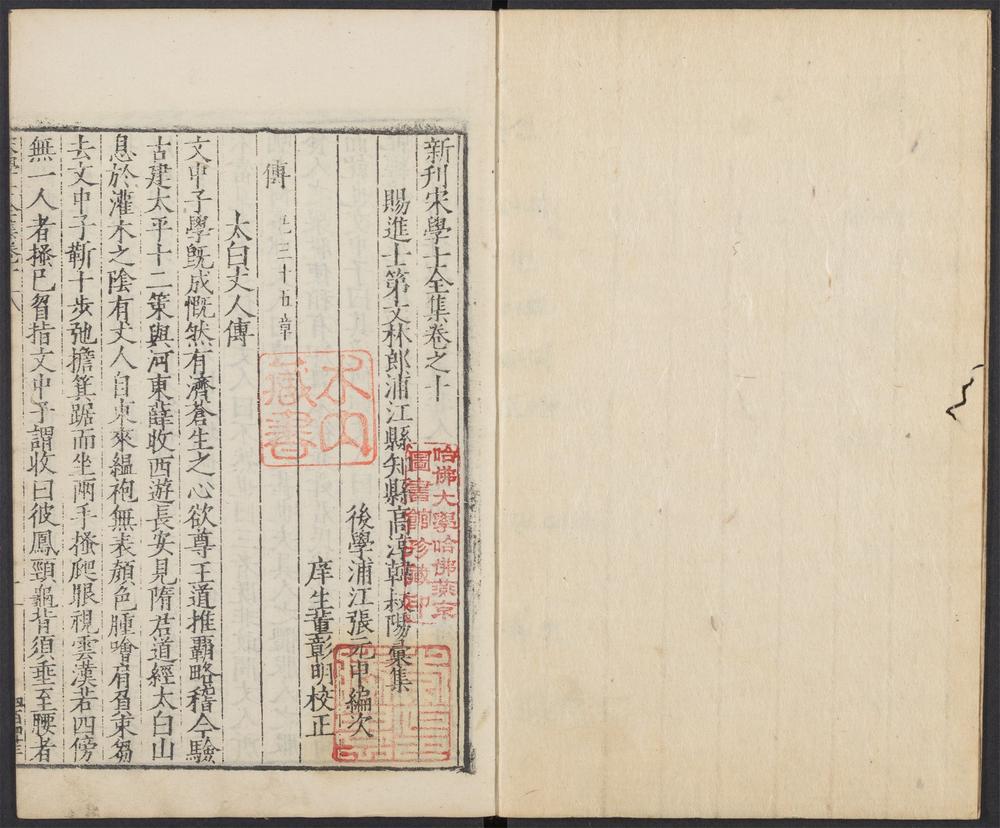 新刊宋學士全集卷之十
賜進士第文林郎浦江縣知縣高淳韓叔陽彙集
後學浦江張元中編次
庠生董彰明校正
傳 凡三十五章
太白丈人傳
文中子學旣成慨然有濟蒼生之心欲尊王道推覇略稽今驗
古建太平十二策與河東薛收西遊長安見隋君道經太白山
息於灌木之陰有丈人自東來緼袍無表顏色腫噲肩負束芻
去文中子靳十歩弛擔箕踞而坐兩手搔爬眼視雲漢若四傍
無一人者搔已眢指文中子謂收曰彼鳳頸龜背須垂至腰者
哈佛大學哈佛燕京
圖書館珍藏印
藏書